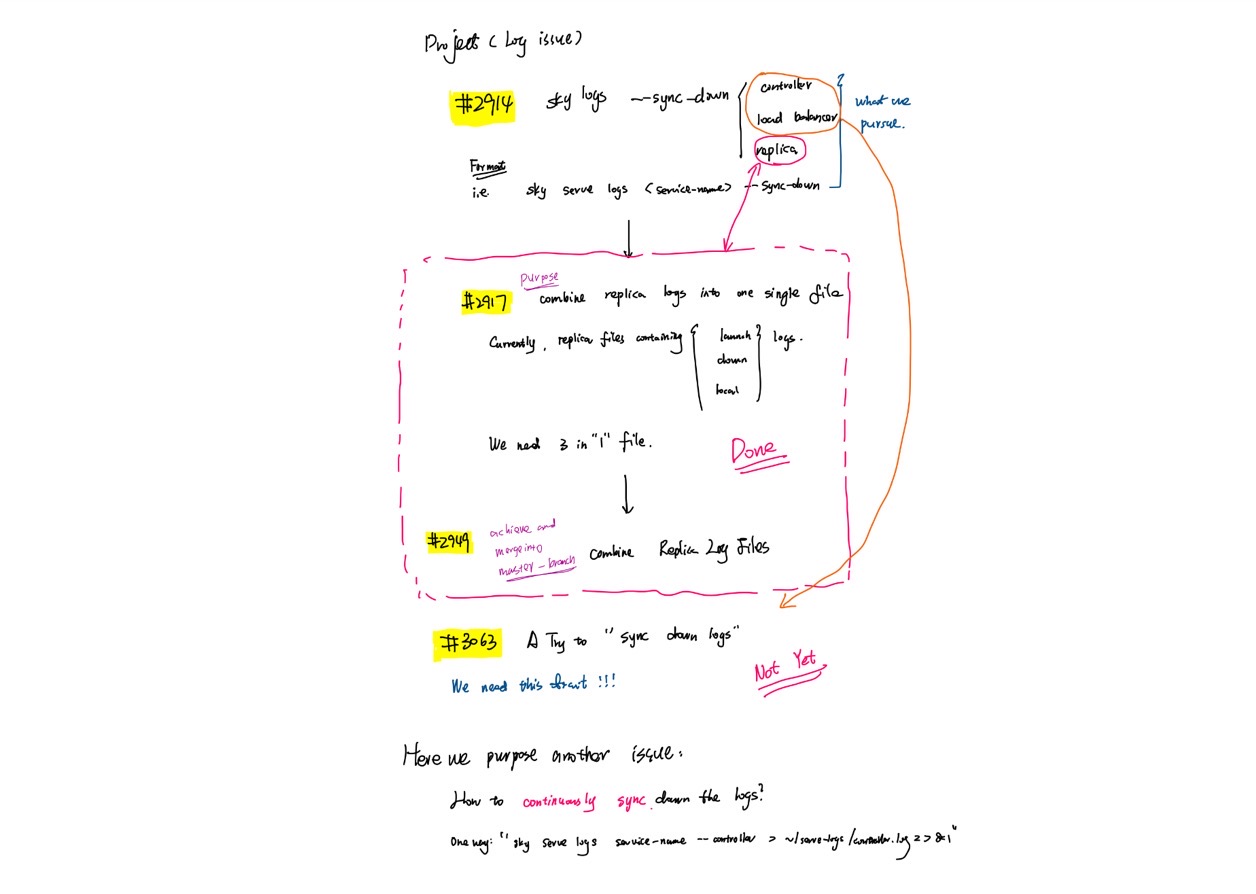 Project (Log issue)
#2914 sky logs --sync-down { controller
load balancer
replica
what we
pursue.
Format
i.e. sky serve logs <service-name> --sync-down
purpose
#2917 combine replica logs into one single file
Currently, replica files containing { launch } logs.
down
local
We need 3 in "1" file.
Done
#2949 achieve and
merge into
master-branch
Combine Replica Log Files
#3063 A Try to "sync down logs"
Not Yet
We need this !!!
Here we purpose another issue:
How to continuously sync down the logs?
One way: "sky serve logs service-name --controller > ~/serve-logs/controller.log 2>&1"